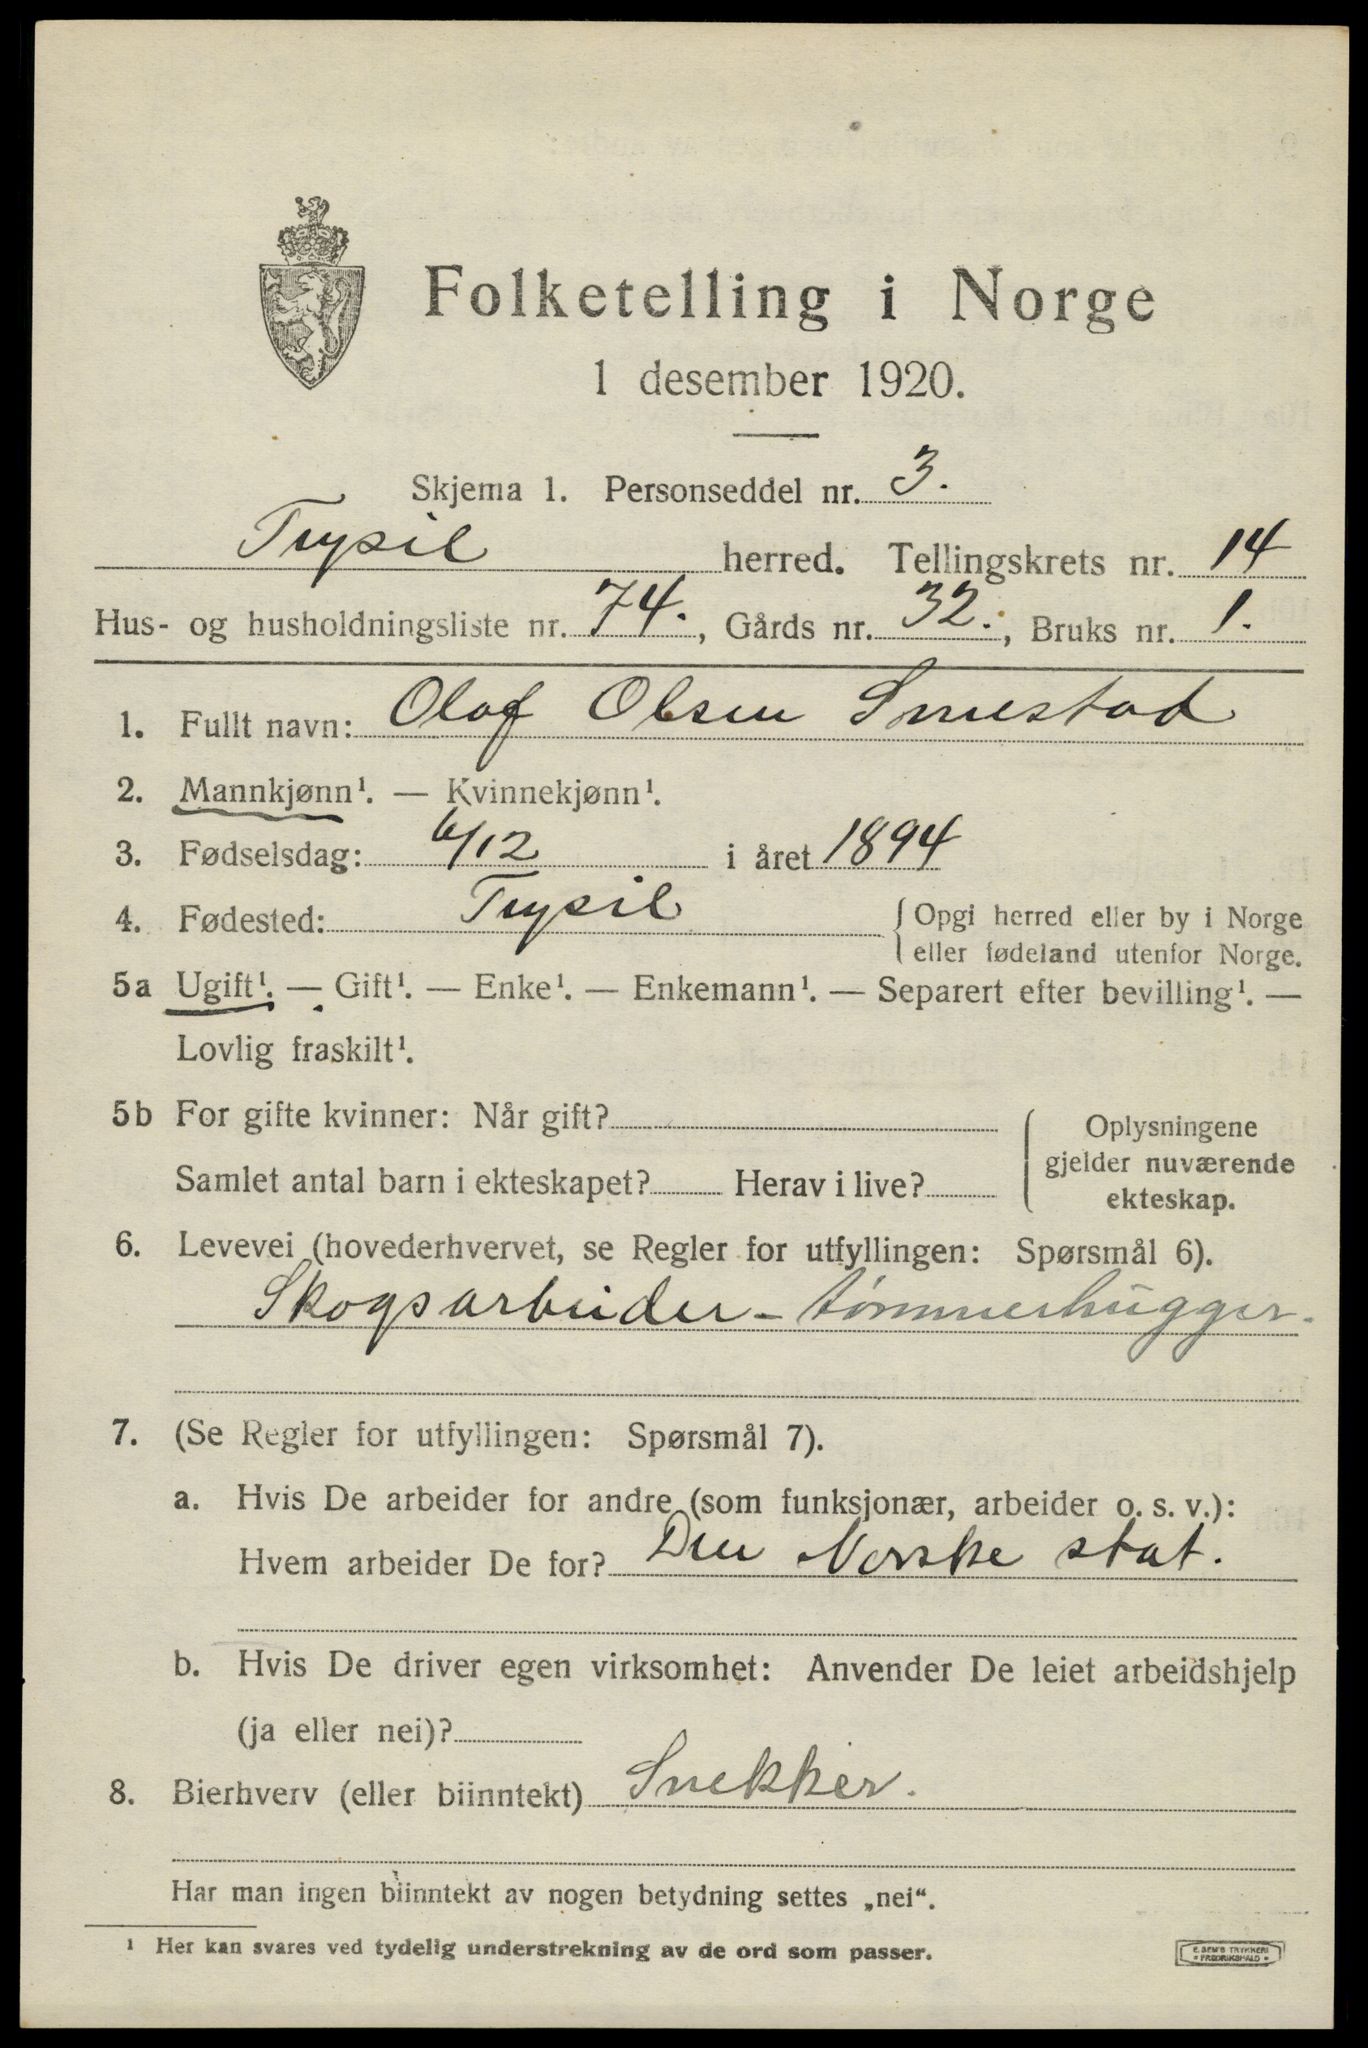 Folketelling i Norge
1 desember 1920.
Skjema 1. Personseddel nr. 3.
Trysil herred. Tellingskrets nr. 14
Hus- og husholdningsliste nr. 74., Gårds nr. 32., Bruks nr. 1.
1. Fullt navn: Olaf Olsen Smestad
2. Mannkjønn¹. — Kvinnekjønn¹.
3. Fødselsdag: 6/12 i året 1894
4. Fødested: Trysil { Opgi herred eller by i Norge
eller fødeland utenfor Norge.
5a Ugift¹. — Gift¹. — Enke¹. — Enkemann¹. — Separert efter bevilling¹. —
Lovlig fraskilt¹.
5b For gifte kvinner: Når gift?
Samlet antal barn i ekteskapet? Herav i live?
Oplysningene
gjelder nuværende
ekteskap.
6. Levevei (hovederhvervet, se Regler for utfyllingen: Spørsmål 6).
Skogsarbeider - tømmerhugger.
7. (Se Regler for utfyllingen: Spørsmål 7).
a. Hvis De arbeider for andre (som funksjonær, arbeider o. s. v.):
Hvem arbeider De for? Den Norske stat.
b. Hvis De driver egen virksomhet: Anvender De leiet arbeidshjelp
(ja eller nei)?
8. Bierhverv (eller biinntekt) Snekker.
Har man ingen biinntekt av nogen betydning settes „nei“.
¹ Her kan svares ved tydelig understrekning av de ord som passer.
E. SEM'S TRYKKERI
FREDRIKSHALD